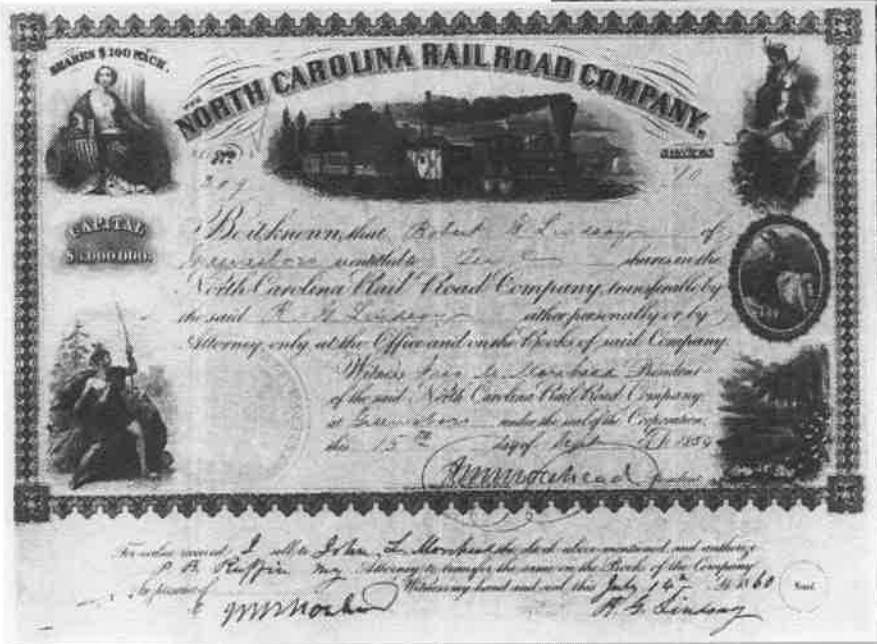 SHARES $100 EACH.
THE
NORTH CAROLINA RAILROAD COMPANY.
No
SHARES
209
10
CAPITAL
$3,000,000.
Be it known, that Robert G Lindsay of
Greensboro is entitled to Ten shares in the
North Carolina Rail Road Company, transferable by
the said R. G Lindsay either personally or by
Attorney only, at the Office and on the Books of said Company.
Witness Morehead President
of the said North Carolina Rail Road Company
at Greensboro under the seal of the Corporation,
this 15th day of Sept A.D. 185
Morehead President
For value received, I sell to John L. Morehead the stock above mentioned, and authorize
P. B. Ruffin my Attorney to transfer the same on the Books of the Company
In presence of Witness my hand and seal this July 14th A.D. 1860 Seal
R G Lindsay